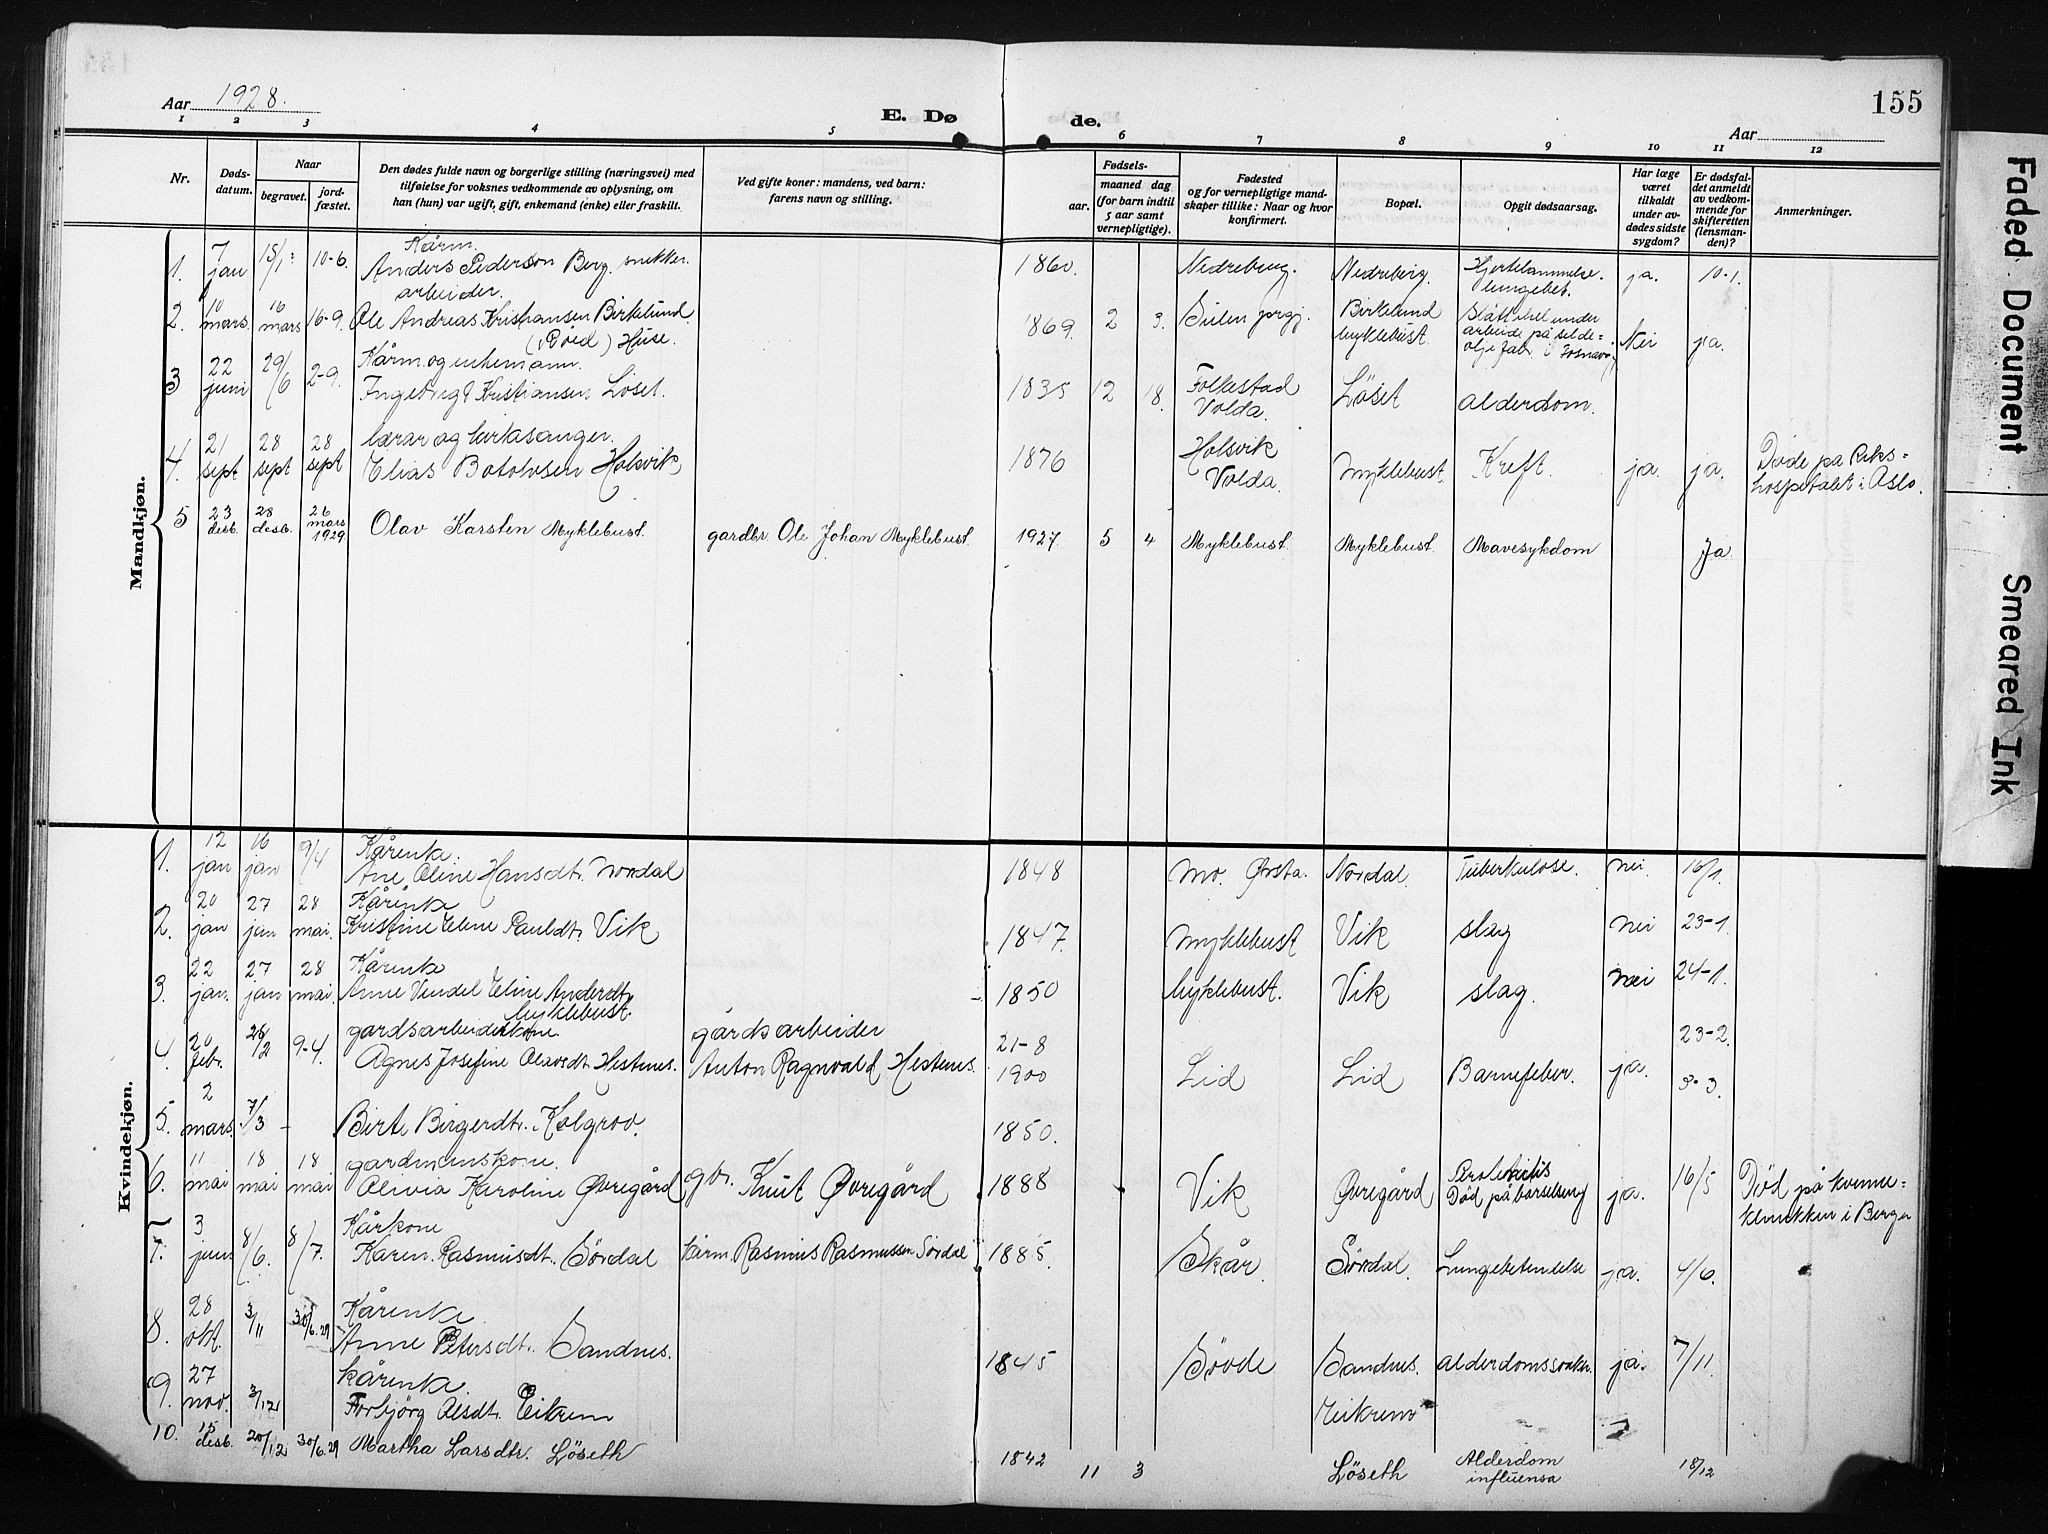 155
Aar 1928.
E. Døde.
Aar
1 2 3 4 5 6 7 8 9 10 11 12
Nr.
Døds-
datum.
Naar
begravet.
jord-
fæstet.
Den dødes fulde navn og borgerlige stilling (næringsvei) med
tilføielse for voksnes vedkommende av oplysning, om
han (hun) var ugift, gift, enkemand (enke) eller fraskilt.
Ved gifte koner: mandens, ved barn:
farens navn og stilling.
Fødsels-
aar.
maaned dag
(for barn indtil
5 aar samt
vernepligtige).
Fødested
og for vernepligtige mand-
skaper tillike: Naar og hvor
konfirmert.
Bopæl.
Opgit dødsaarsag.
Har læge
været
tilkaldt
under av-
dødes sidste
sygdom?
Er dødsfal-
det anmeldt
av vedkom-
mende for
skifteretten
(lensman-
den)?
Anmerkninger.
Mandkjøn.
1. 7 jan 15/1 10-6. Kårm. Anders Pederson Berg. snekker. 1860. Nedreberg. Nedreberg. Hjertelammelse. lungebet. ja. 10-1.
2. 10 mars. 16 mars 16-9. arbeider. Ole Andreas Kristiansen Birkelund Huse. 1869. 2 3. Birkelund Myklebust. Nei ja.
3 22 juni 29/6 2-9. Kårm og enkemann. Ingebrigt Kristiansen Löset. 1835 12 18. Folkestad Volda. Löset alderdom.
4. 21 sept 28 sept 28 sept lærar og kirkasanger. Elias Botolvsen Holsvik 1876 Holsvik Volda. Myklebust. Kreft. ja. ja. Döde på Riks= hospitalet i Oslo.
5 23 desb. 28 desb. 26 mars 1929 Olav Karsten Myklebust. gardbr. Ole Johan Myklebust. 1927. 5 4 Myklebust. Myklebust. Mavesykdom Ja
Kvindekjøn.
1. 12 jan 16 jan 9/4 Kårenke. Ane Oline Hansdt. Nordal 1848 Mo. Ørsta. Nordal. Tuberkulose. nei. 16/1.
2. 20 jan 27 jan 28 mai. Kårenke Kristine Eline Paulsdt. Vik 1847. Myklebust Vik slag nei 23-1.
3. 22 jan. 27 jan 28 mai. Kårenke Anne Vendel Eline Andersdt. Myklebust. 1850 Myklebust. Vik slag. nei 24-1.
4. 20 febr. 26/2 9-4. gardsarbeiderkone Agnes Josefine Olavsdt. Hestenes. gårdsarbeider Anton Ragnvald Hestenes. 21-8 1900 Lid Lid Barnefeber. ja. 23-2.
5. 2 mars. 7/3 - Birte Birgerdt. Kolgrov. 1850. 3-3.
6. 11 mai 18 mai 18 mai gardmannskone. Olivia Karoline Øvregård gbr. Knut Øvregård 1888 Vik Øvregård Död på barselseng ja. 16/5 Död på kvinne= klinikken i Bergen
7. 3 juni 8/6. 8/7. Kårkone Karen Rasmusdt. Sördal kårm. Rasmus Rasmussen Sördal 1885. Skår. Sördal. Lungebetendelse ja. 4/6.
8. 28 okt. 3/11 30/6.29 Kårenke Anne Petersdt. Sandnes. 1845 Sövde Sandnes. alderdomssvakh. ja. 7/11.
9. 27 nov. 3/12 kårenke. Torbjörg Olsdt. Eikrem Eikrem
10. 15 desb. 20/12 30/6.29 Martha Larsdtr. Löseth 1842 11 3 Löseth Alderdom influensa 18/12
Faded Document
Smeared Ink